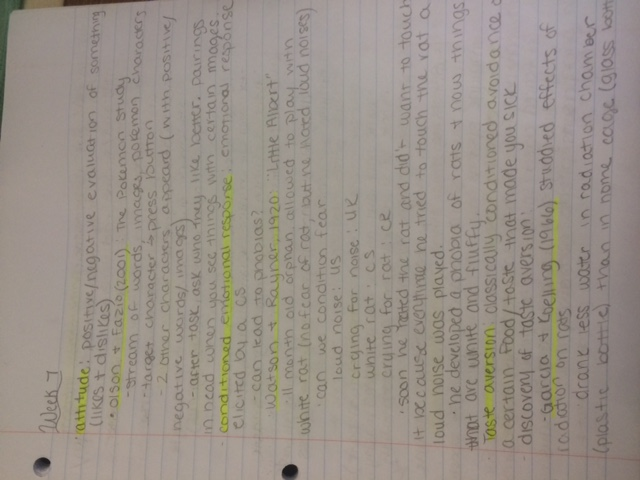 Week 7
attitude: positive/negative evaluation of something
(likes + dislikes)
• Olson + Fazio (2001): The Pokemon Study
- stream of words, images, pokemon characters
- target character → press button
- 2 other characters appeard (with positive/
negative words/images)
- after task, ask who they like better. pairings
in head when you see things with certain images
• conditioned emotional response: emotional response
elicited by a CS
• can lead to phobias?
• Watson + Rayner, 1920: "Little Albert"
• 11 month old orphan allowed to play with
white rat (no fear of rat, but he hated loud noises)
• can we condition fear
loud noise: US
crying for noise: UR
white rat: CS
crying for rat: CR
• soon he hated the rat and didn't want to touch
it because everytime he tried to touch the rat a
loud noise was played.
• he developed a phobia of rats + now things
that are white and fluffy.
Taste aversion: classically conditioned avoidance
a certain food/taste that made you sick
- discovery of taste aversion:
- Garcia + Koelling (1966) studied effects of
radiation on rats
drank less water in radiation chamber
(plastic bottle) than in home cage (glass